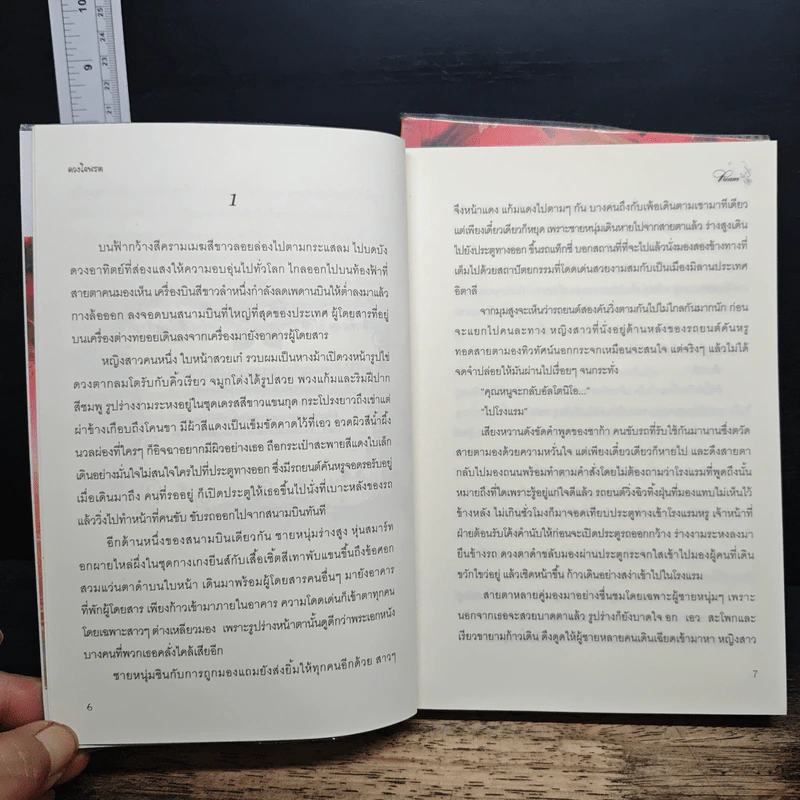 9
10
25
24
23
22
21
ดวงใจพรต
1
บนฟ้ากว้างสีครามเมฆสีขาวลอยล่องไปตามกระแสลม ไปบดบัง
ดวงอาทิตย์ที่ส่องแสงให้ความอบอุ่นไปทั่วโลก ไกลออกไปบนท้องฟ้าที่
สายตาคนมองเห็น เครื่องบินสีขาวลำหนึ่งกำลังลดเพดานบินให้ต่ำลงมาแล้ว
กางล้อออก ลงจอดบนสนามบินที่ใหญ่ที่สุดของประเทศ ผู้โดยสารที่อยู่
บนเครื่องต่างทยอยเดินลงจากเครื่องมายังอาคารผู้โดยสาร
หญิงสาวคนหนึ่ง ใบหน้าสวยเก๋ รวบผมเป็นหางม้าเปิดดวงหน้ารูปไข่
ดวงตากลมโตรับกับคิ้วเรียว จมูกโด่งได้รูปสวย พวงแก้มและริมฝีปาก
สีชมพู รูปร่างงามระหงอยู่ในชุดเดรสสีขาวแขนกุด กระโปรงยาวถึงเข่าแต่
ผ่าข้างเกือบถึงโคนขา มีผ้าสีแดงเป็นเข็มขัดคาดไว้ที่เอว อวดผิวสีน้ำผึ้ง
นวลผ่องที่ใครๆ ก็อิจฉาอยากมีผิวอย่างเธอ ถือกระเป๋าสะพายสีแดงใบเล็ก
เดินอย่างมั่นใจไม่สนใจใครไปที่ประตูทางออก ซึ่งมีรถยนต์คันหรูจอดรอรับอยู่
เมื่อเดินมาถึง คนที่รออยู่ ก็เปิดประตูให้เธอขึ้นไปนั่งที่เบาะหลังของรถ
แล้ววิ่งไปทำหน้าที่คนขับ ขับรถออกไปจากสนามบินทันที
อีกด้านหนึ่งของสนามบินเดียวกัน ชายหนุ่มร่างสูง หุ่นสมาร์ท
อกผายไหล่ผึ่งในชุดกางเกงยีนส์กับเสื้อเชิ้ตสีเทาพับแขนขึ้นถึงข้อศอก
สวมแว่นตาดำบนใบหน้า เดินมาพร้อมผู้โดยสารคนอื่นๆ มายังอาคาร
ที่พักผู้โดยสาร เพียงก้าวเข้ามาภายในอาคาร ความโดดเด่นก็เข้าตาทุกคน
โดยเฉพาะสาวๆ ต่างเหลียวมอง เพราะรูปร่างหน้าตานั้นดูดีกว่าพระเอกหนัง
บางคนที่พวกเธอคลั่งไคล้เสียอีก
ชายหนุ่มชินกับการถูกมองแถมยังส่งยิ้มให้ทุกคนอีกด้วย สาวๆ
6
จึงหน้าแดง แก้มแดงไปตามๆ กัน บางคนถึงกับเพ้อเดินตามเขามาทีเดียว
แต่เพียงเดี๋ยวเดียวก็หยุด เพราะชายหนุ่มเดินหายไปจากสายตาแล้ว ร่างสูงเดิน
ไปยังประตูทางออก ขึ้นรถแท็กซี่ บอกสถานที่ที่จะไปแล้วนั่งมองสองข้างทางที่
เต็มไปด้วยสถาปัตยกรรมที่โดดเด่นสวยงามสมกับเป็นเมืองมิลานประเทศ
อิตาลี
จากมุมสูงจะเห็นว่ารถยนต์สองคันวิ่งตามกันไปไม่ไกลกันมากนัก ก่อน
จะแยกไปคนละทาง หญิงสาวที่นั่งอยู่ด้านหลังของรถยนต์คันหรู
ทอดสายตามองทิวทัศน์นอกกระจกเหมือนจะสนใจ แต่จริงๆ แล้วไม่ได้
จดจำปล่อยให้มันผ่านไปเรื่อยๆ จนกระทั่ง
“คุณหนูจะกลับอัลโตนิโอ...”
“ไปโรงแรม”
เสียงหวานดังขัดคำพูดของซาก้า คนขับรถที่รับใช้กันมานานซึ่งตวัด
สายตามองด้วยความหวั่นใจ แต่เพียงเดี๋ยวเดียวก็หายไป และดึงสายตา
กลับไปมองถนนพร้อมทำตามคำสั่งโดยไม่ต้องถามว่าโรงแรมที่พูดถึงนั้น
หมายถึงที่ใดเพราะรู้อยู่แก่ใจดีแล้ว รถยนต์วิ่งฉิวทิ้งฝุ่นที่มองแทบไม่เห็นไว้
ข้างหลัง ไม่เกินชั่วโมงก็มาจอดเทียบประตูทางเข้าโรงแรมหรู เจ้าหน้าที่
ฝ่ายต้อนรับโค้งคำนับให้ก่อนจะเปิดประตูรถออกกว้าง ร่างงามระหงลงมา
ยืนข้างรถ ดวงตาดำขลับมองผ่านประตูกระจกใสเข้าไปมองผู้คนที่เดิน
ขวักไขว่อยู่ แล้วเชิดหน้าขึ้น ก้าวเดินอย่างสง่าเข้าไปในโรงแรม
สายตาหลายคู่มองมาอย่างชื่นชมโดยเฉพาะผู้ชายหนุ่มๆ เพราะ
นอกจากเธอจะสวยบาดตาแล้ว รูปร่างก็ยังบาดใจ อก เอว สะโพกและ
เรียวขายามก้าวเดิน ดึงดูดให้ผู้ชายหลายคนเดินเฉียดเข้ามาหา หญิงสาว
7